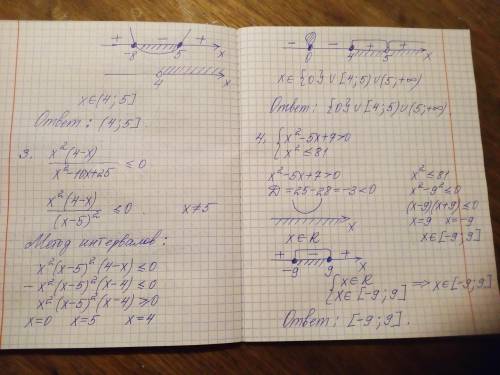 + - + x
-8 5
4 x
x∈(4;5]
Ответ: (4;5].
3. x²(4-x) / x²-10x+25 ≤ 0
x²(4-x) / (x-5)² ≤ 0 x≠5
Метод интервалов:
x²(x-5)²(4-x)≤0
-x²(x-5)²(x-4)≤0
x²(x-5)²(x-4)≥0
x=0 x=5 x=4
- - + + x
0 4 5
x∈{0}∪[4;5)∪(5;+∞)
Ответ: {0}∪[4;5)∪(5;+∞)
4. { x²-5x+7>0
x²≤81
x²-5x+7>0 x²≤81
D=25-28=-3<0 x²-9²≤0
(x-9)(x+9)≤0
x x=9 x=-9
x∈R x∈[-9;9]
+ - + x
-9 9
{ x∈R
x∈[-9;9] ⇒ x∈[-9;9]
Ответ: [-9;9].